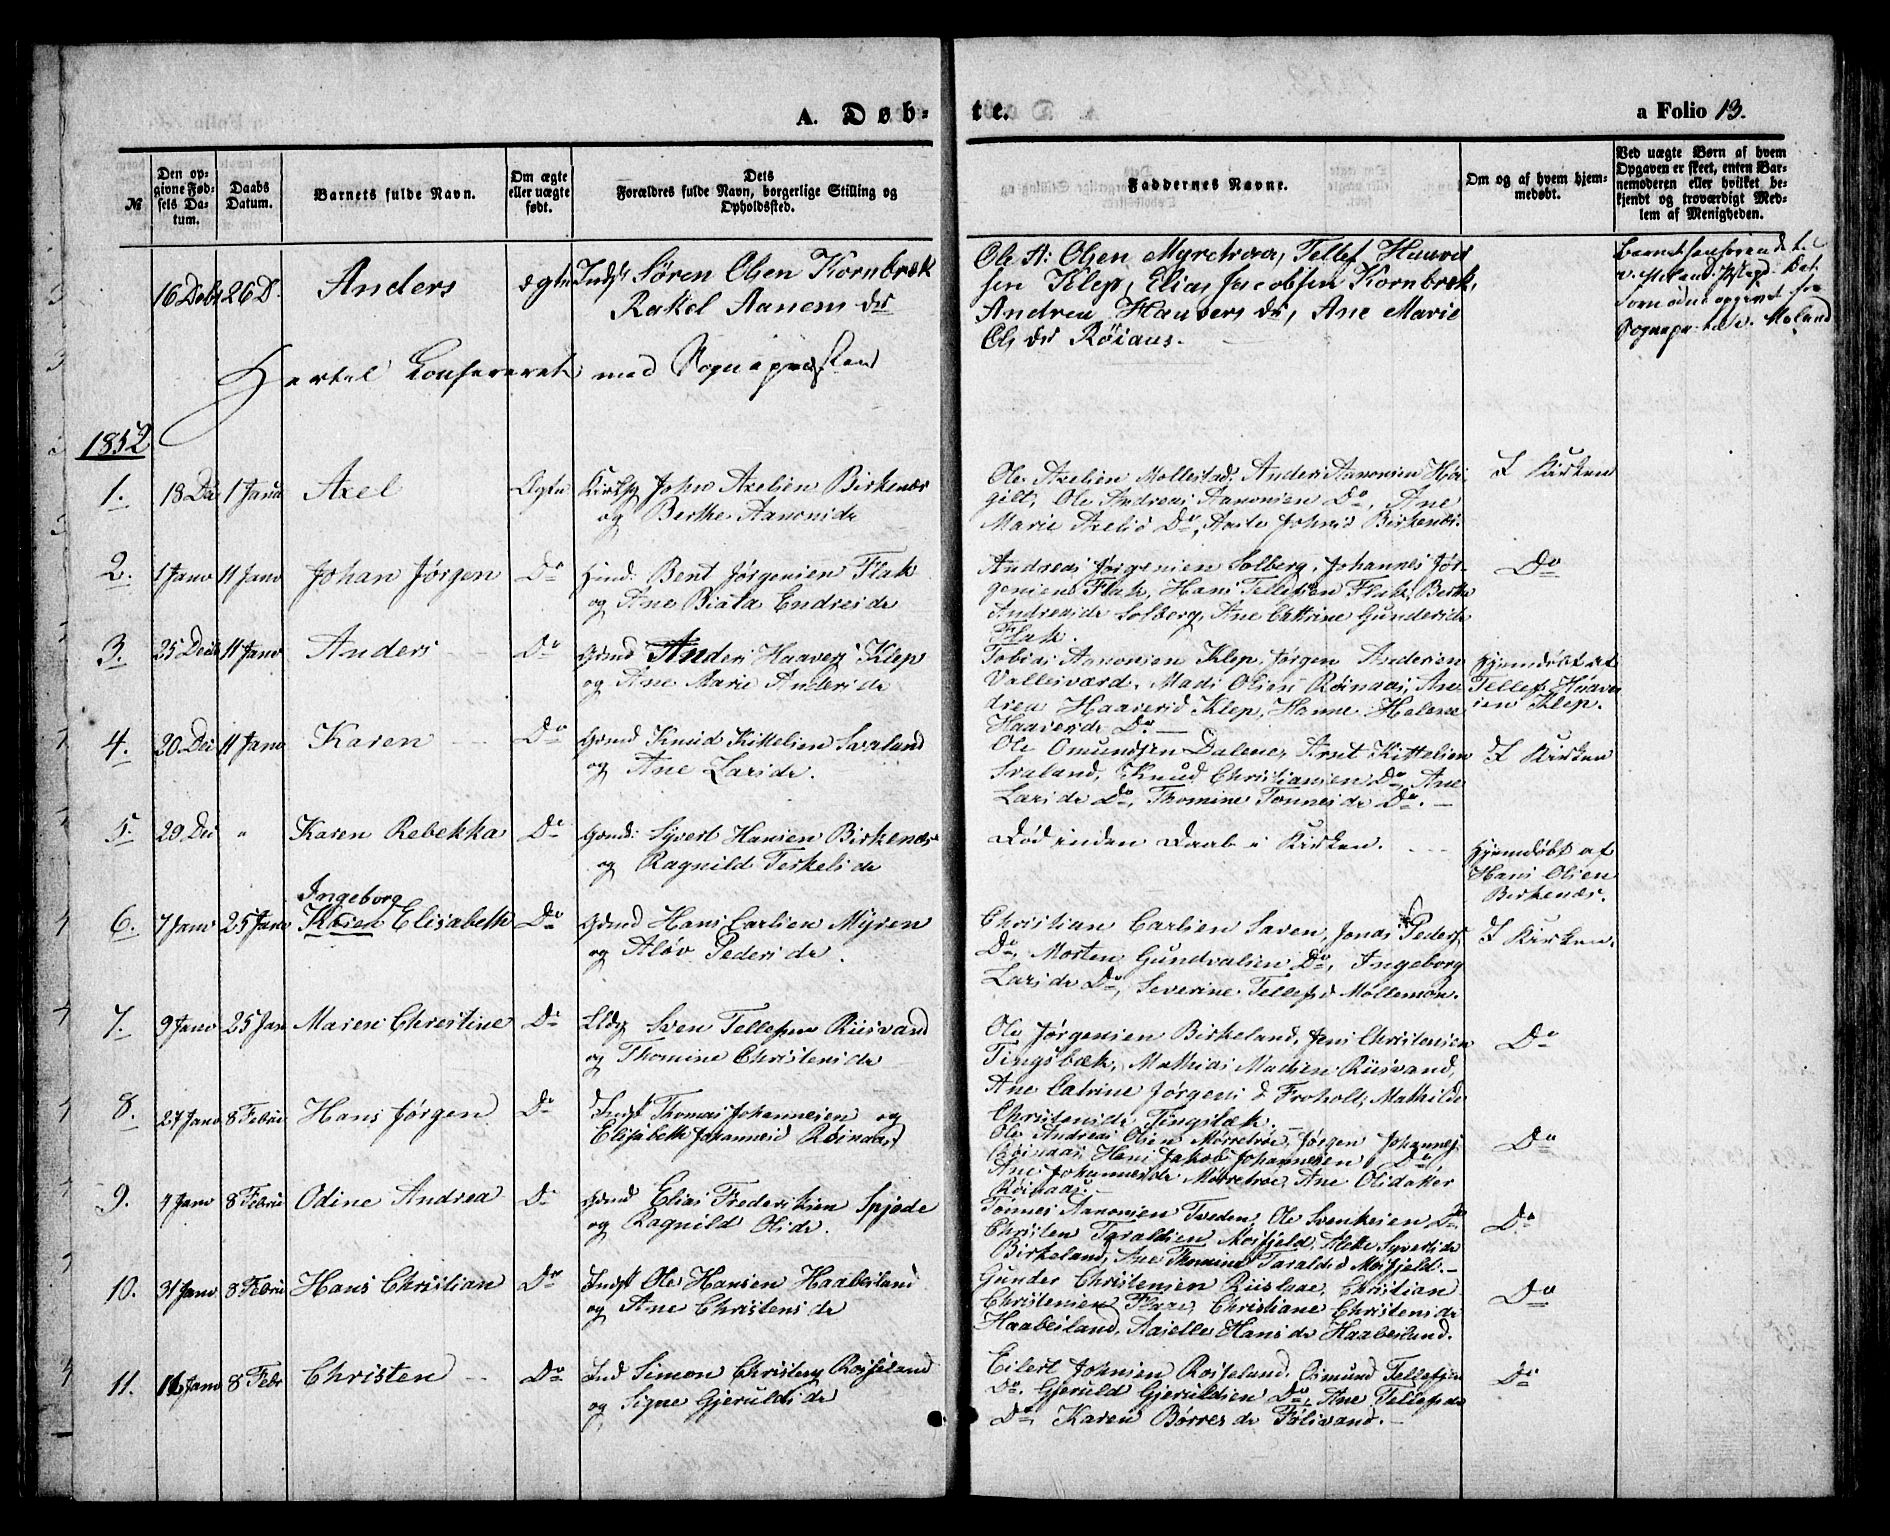 A. Døb-
te.
a Folio 13.
№
Den op-
givne Fød-
sels Da-
tum.
Daabs
Datum.
Barnets fulde Navn.
Om ægte
eller uægte
født.
Dets
Forældres fulde Navn, borgerlige Stilling og
Opholdssted.
Faddernes Navne.
Om og af hvem hjem-
medøbt.
Ved uægte Børn af hvem
Opgaven er skeet, enten Bar-
nemoderen eller hvilket be-
kjendt og troværdigt Med-
lem af Menigheden.
16 Debr 26 D. Anders ægte Indst Sören Olsen Kornbræk
Rakel Aanens dr
Ole A: Olsen Myretraa, Tellef Haaver
sen Klep, Elias Jacobsen Kornbræk,
Andrea Haavers dr, Ane Marie
Ols dr Röiaas.
Hertil Confereret med Sognepræsten
1852
1. 18 Dec 1 Janu Axel Ægte Kirkesg John Axelsen Birkenæs
og Berthe Aanonsdr
Ole Axelsen Mollestad, Anders Aanonsen
Ole Andreas Aanonsen Do, Ane
Marie Axelsd Do, Aaste Johnsd Birkenæs.
I Kirken
2. 1 Janv 11 Janv Johan Jørgen Do Huusmd: Bent Jørgensen Flak
og Ane Beata Endresdr
Andreas Jørgensen Solberg, Johannes Jør-
gensen Flak, Hans Tellefsen Flak, Berthe
Andreasdr Solberg, Ane Cathrine Gundersdr
Flak.
Do
3. 25 Decbr 11 Janv Anders Do Grmd Anders Haavers Klep
og Ane Marie Andersdr
Tobias Aanonsen Klep, Jørgen Andersen
Vallesværd, Mads Olsen Røinaas, An-
drea Haaversd Klep, Hanne Helene
Haaversdr Do.
Hjemdøbt af
Tellef Haaver
sen Klep.
4. 30 Dec 11 Janv Karen Do Grmd Knud Kittelsen Svaland
og Ane Larsdr.
Ole Omundsen Dalene, Arnt Kittelsen
Svaland, Knud Christiansen Do, Ane
Larsdr Do, Thomine Tonnesdr Do.
I Kirken
5. 29 Dec " Karen Rebekka Do Grmd: Syvert Hansen Birkenæs
og Ragnild Terkelsdr
Død inden Daab i Kirken.
Hjemdøbt af
Hans Olsen
Birkenæs.
Ingeborg
6. 7 Janv 25 Janv Karen Elisabeth Do Grmd Hans Carlsen Myren
og Aløv Pedersdr.
Christian Carlsen Saven, Jonas Peders
Do, Morten Gundvalsen Do, Ingeborg
Larsdr Do, Severine Tellefsd Møllemoen.
I Kirken.
7. 9 Janv 25 Jan Maren Christine Do Sven Tellefsen Riisvand
og Thomine Christensdr
Ole Jørgensen Birkeland, Jens Christensen
Tingsbæk, Mathias Madsen Riisvand,
Ane Catrine Jørgensd Froholt, Mathilde
Christensdr Tingsbæk.
Do
8. 27 Janv 8 Febru Hans Jørgen Do Indst Thomas Johannesen og
Elisabeth Johannesd Røinaas
Ole Andreas Olsen Mørretroe, Jørgen Johannes
Røinaas, Hans Jakob Johannesen Do,
Ane Johannesdr Mørretroe, Ane Olsd
Røinaas.
Do
9. 4 Janv 8 Febru Odine Andrea Do Grmd Elias Frederiksen Spjøde
og Ragnild Olsdr.
Tønnes Aanonsen Tveden, Ole Svenkesen Do,
Christen Taraldsen Mosfjeld, Alette Syvertsdr
Birkeland, Ane Thomine Taraldsd Mosfjeld.
Do
10. 31 Janv 8 Febru Hans Christian Do Indst Ole Hansen Haabesland
og Ane Christensdr
Gunder Christensen Riislaae, Christian
Christensen Flaae, Christiane Christensdr
Haabesland, Aaselle Hansdr Haabesland.
Do
11. 16 Janv 8 Febr Christen Do Ind Simon Christens Rosseland
og Signe Gjeruldsdr
Eilert Johnsen Rosseland, Osmund Tellefsen
Do, Gjeruld Gjeruldsen Do, Ane Tellefsdr
Do Karen Børresdr Følisvand.
Do